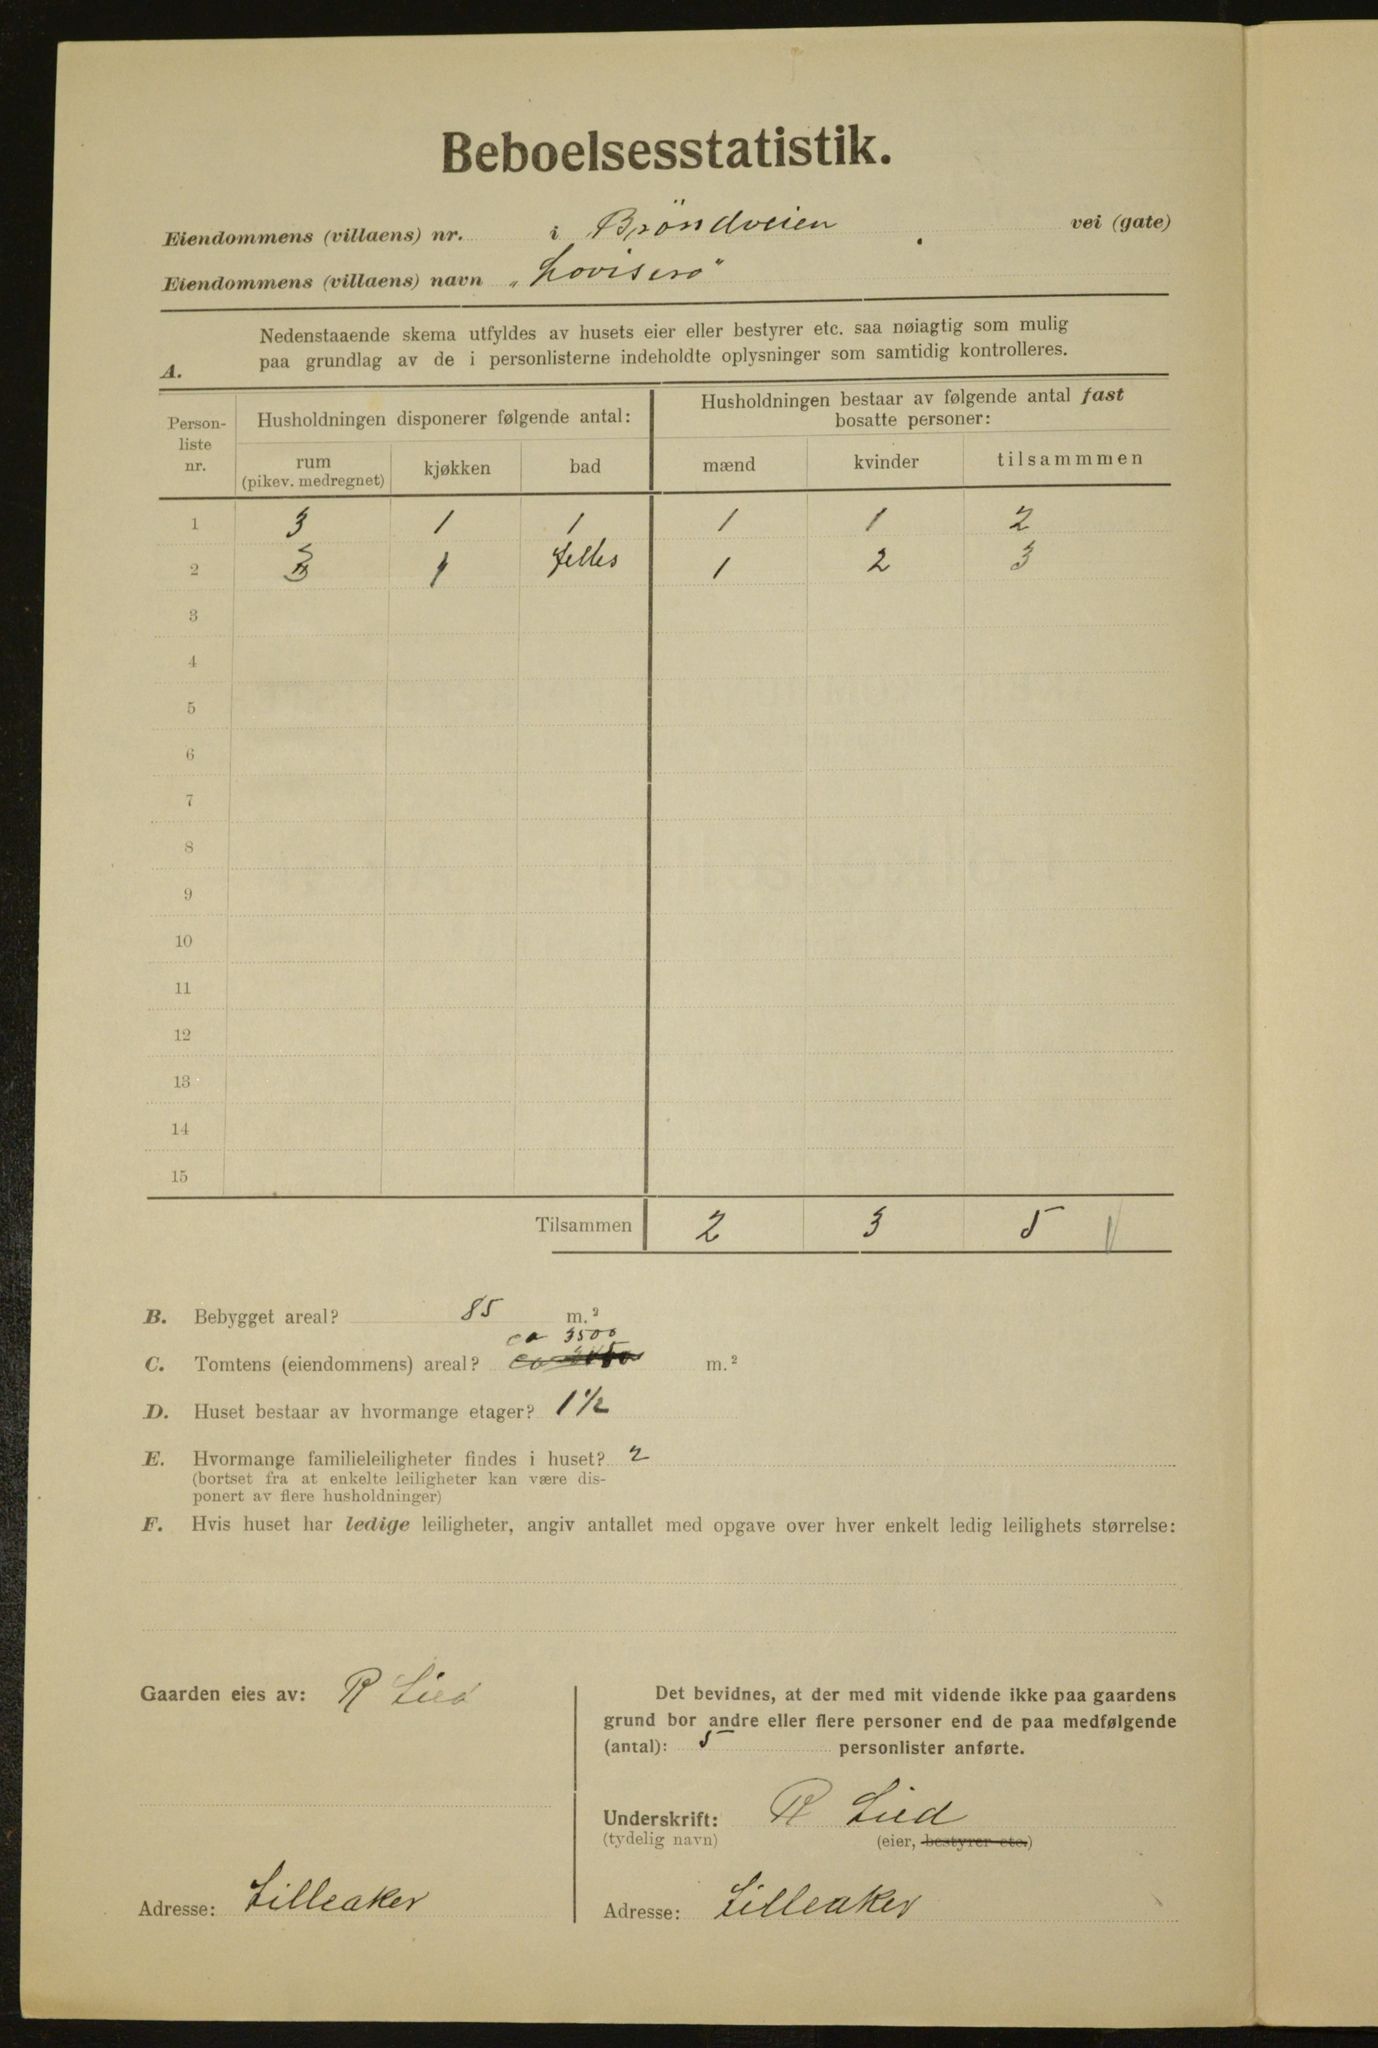 Beboelsesstatistik.
Eiendommens (villaens) nr. i Bröndveien vei (gate)
Eiendommens (villaens) navn „Lovisero"
Nedenstaaende skema utfyldes av husets eier eller bestyrer etc. saa nøiagtig som mulig
A. paa grundlag av de i personlisterne indeholdte oplysninger som samtidig kontrolleres.
Person-liste nr. Husholdningen disponerer følgende antal: Husholdningen bestaar av følgende antal fast bosatte personer:
rum (pikev. medregnet) kjøkken bad mænd kvinder tilsammmen
1 3 1 1 1 1 2
2 3 1 felles 1 2 3
3
4
5
6
7
8
9
10
11
12
13
14
15
Tilsammen 2 3 5
B. Bebygget areal? 85 m.²
ca 3500
C. Tomtens (eiendommens) areal? m.²
D. Huset bestaar av hvormange etager? 1 1/2
E. Hvormange familieleiligheter findes i huset? 2
(bortset fra at enkelte leiligheter kan være dis-
ponert av flere husholdninger)
F. Hvis huset har ledige leiligheter, angiv antallet med opgave over hver enkelt ledig leilighets størrelse:
Gaarden eies av: R Lied
Adresse: Lilleaker
Det bevidnes, at der med mit vidende ikke paa gaardens
grund bor andre eller flere personer end de paa medfølgende
(antal): 5 personlister anførte.
Underskrift: R Lied
(tydelig navn) (eier, bestyrer etc.)
Adresse: Lilleaker